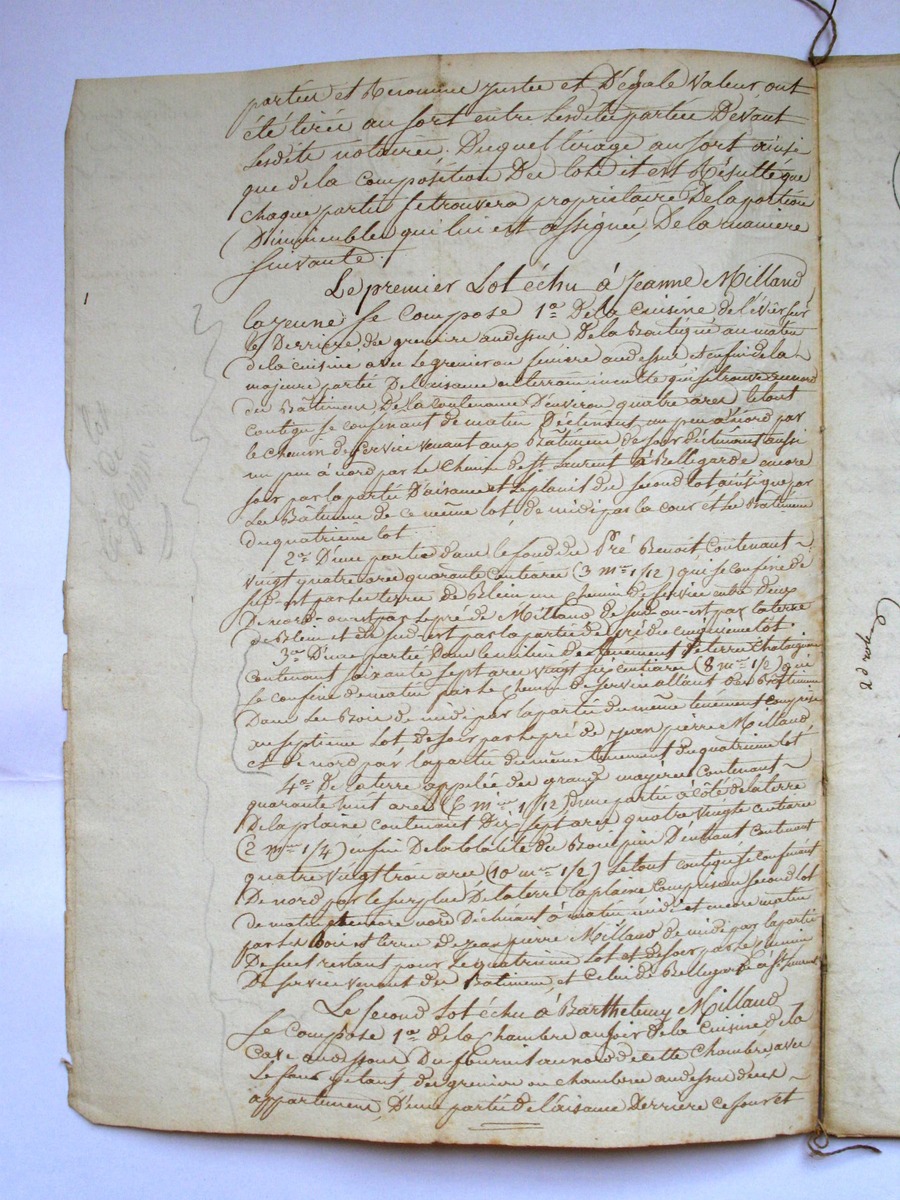 parties et Reconnus justes et D'égale valeur, ont
été tirés au sort entre lesdites parties Devant
lesdits notaires. Duquel tirage au sort ainsi
que de la Composition Des lots il est Résulté que
chaque partie se trouvera propriétaire De la portion
D'immeubles qui lui est assignée De la manière
suivante.
Le premier Lot échu à Jeanne Milland
la jeune se Compose 1° De la Cuisine de l'évier sur
le Derrière des greniers au dessus De la Boutique au matin
de la Cuisine avec le grenier au dessus et enfin de la
majeure partie De l'aisance ou terrain inculte qui se trouve
des Bâtiments De la Contenance D'environ quatre ares le tout
Contigu se confinant de matin Déclinant un peu à nord par
le chemin de service venant aux Bâtiments de soir déclinant aussi
un peu à nord par le Chemin de St Laurent à Bellegarde encore
soir par la partie D'aisance et le planis du second lot ainsi que par
les Bâtiments de ce même lot de midi par la cour et les Bâtiments
du quatrième lot.
2° D'une partie dans le fond du Pré Benoit Contenant
vingt quatre ares quarante Centiares (3 m 1/12) qui se confine de
sud-est par les terres de Blein un Chemin de service entre deux
De nord-ouest par le pré de Milland de sud-ouest par la terre
de Blein et de sud-est par la partie de pré du cinquième lot.
3° D'une partie Dans le milieu du tènement De terre
Contenant soixante sept ares vingt Centiares (8 m 1/2) qui
se confine de matin par le Chemin de service allant des Bâtiments
Dans les Bois de midi par la partie du même tènement comprise
au septième Lot de soir par le pré de jean pierre Milland
et de nord par la partie du même tènement du quatrième lot
4° De la terre appelée des grands Contenant
quarante huit ares (6 m 1/12) D'une partie à côté de la terre
De la plaine contenant Dix sept ares quatre vingts Centiares
(2 m 1/4) enfin De la totalité du Bois pin Contenant
quatre vingt trois ares (10 m 1/2) Le tout contigu se confinant
De nord par le surplus De la terre la plaine Compris au second lot
de matin encore nord Déclinant à matin midi et encore matin
par les Bois et terres de jean pierre Milland de midi par la partie
De restant pour le quatrième Lot et de soir par le Chemin
De service venant des Bâtiments et Celui de Bellegarde à St Laurent
Le second Lot échu à Barthélemy Milland
se Compose 1° de la Chambre au soir de la Cuisine de la
Cave au dessous Du fournil au nord de cette Chambre, avec
le four y étant des greniers ou chambres au dessus de ces
appartements, D'une partie de l'aisance Derrière ce four et